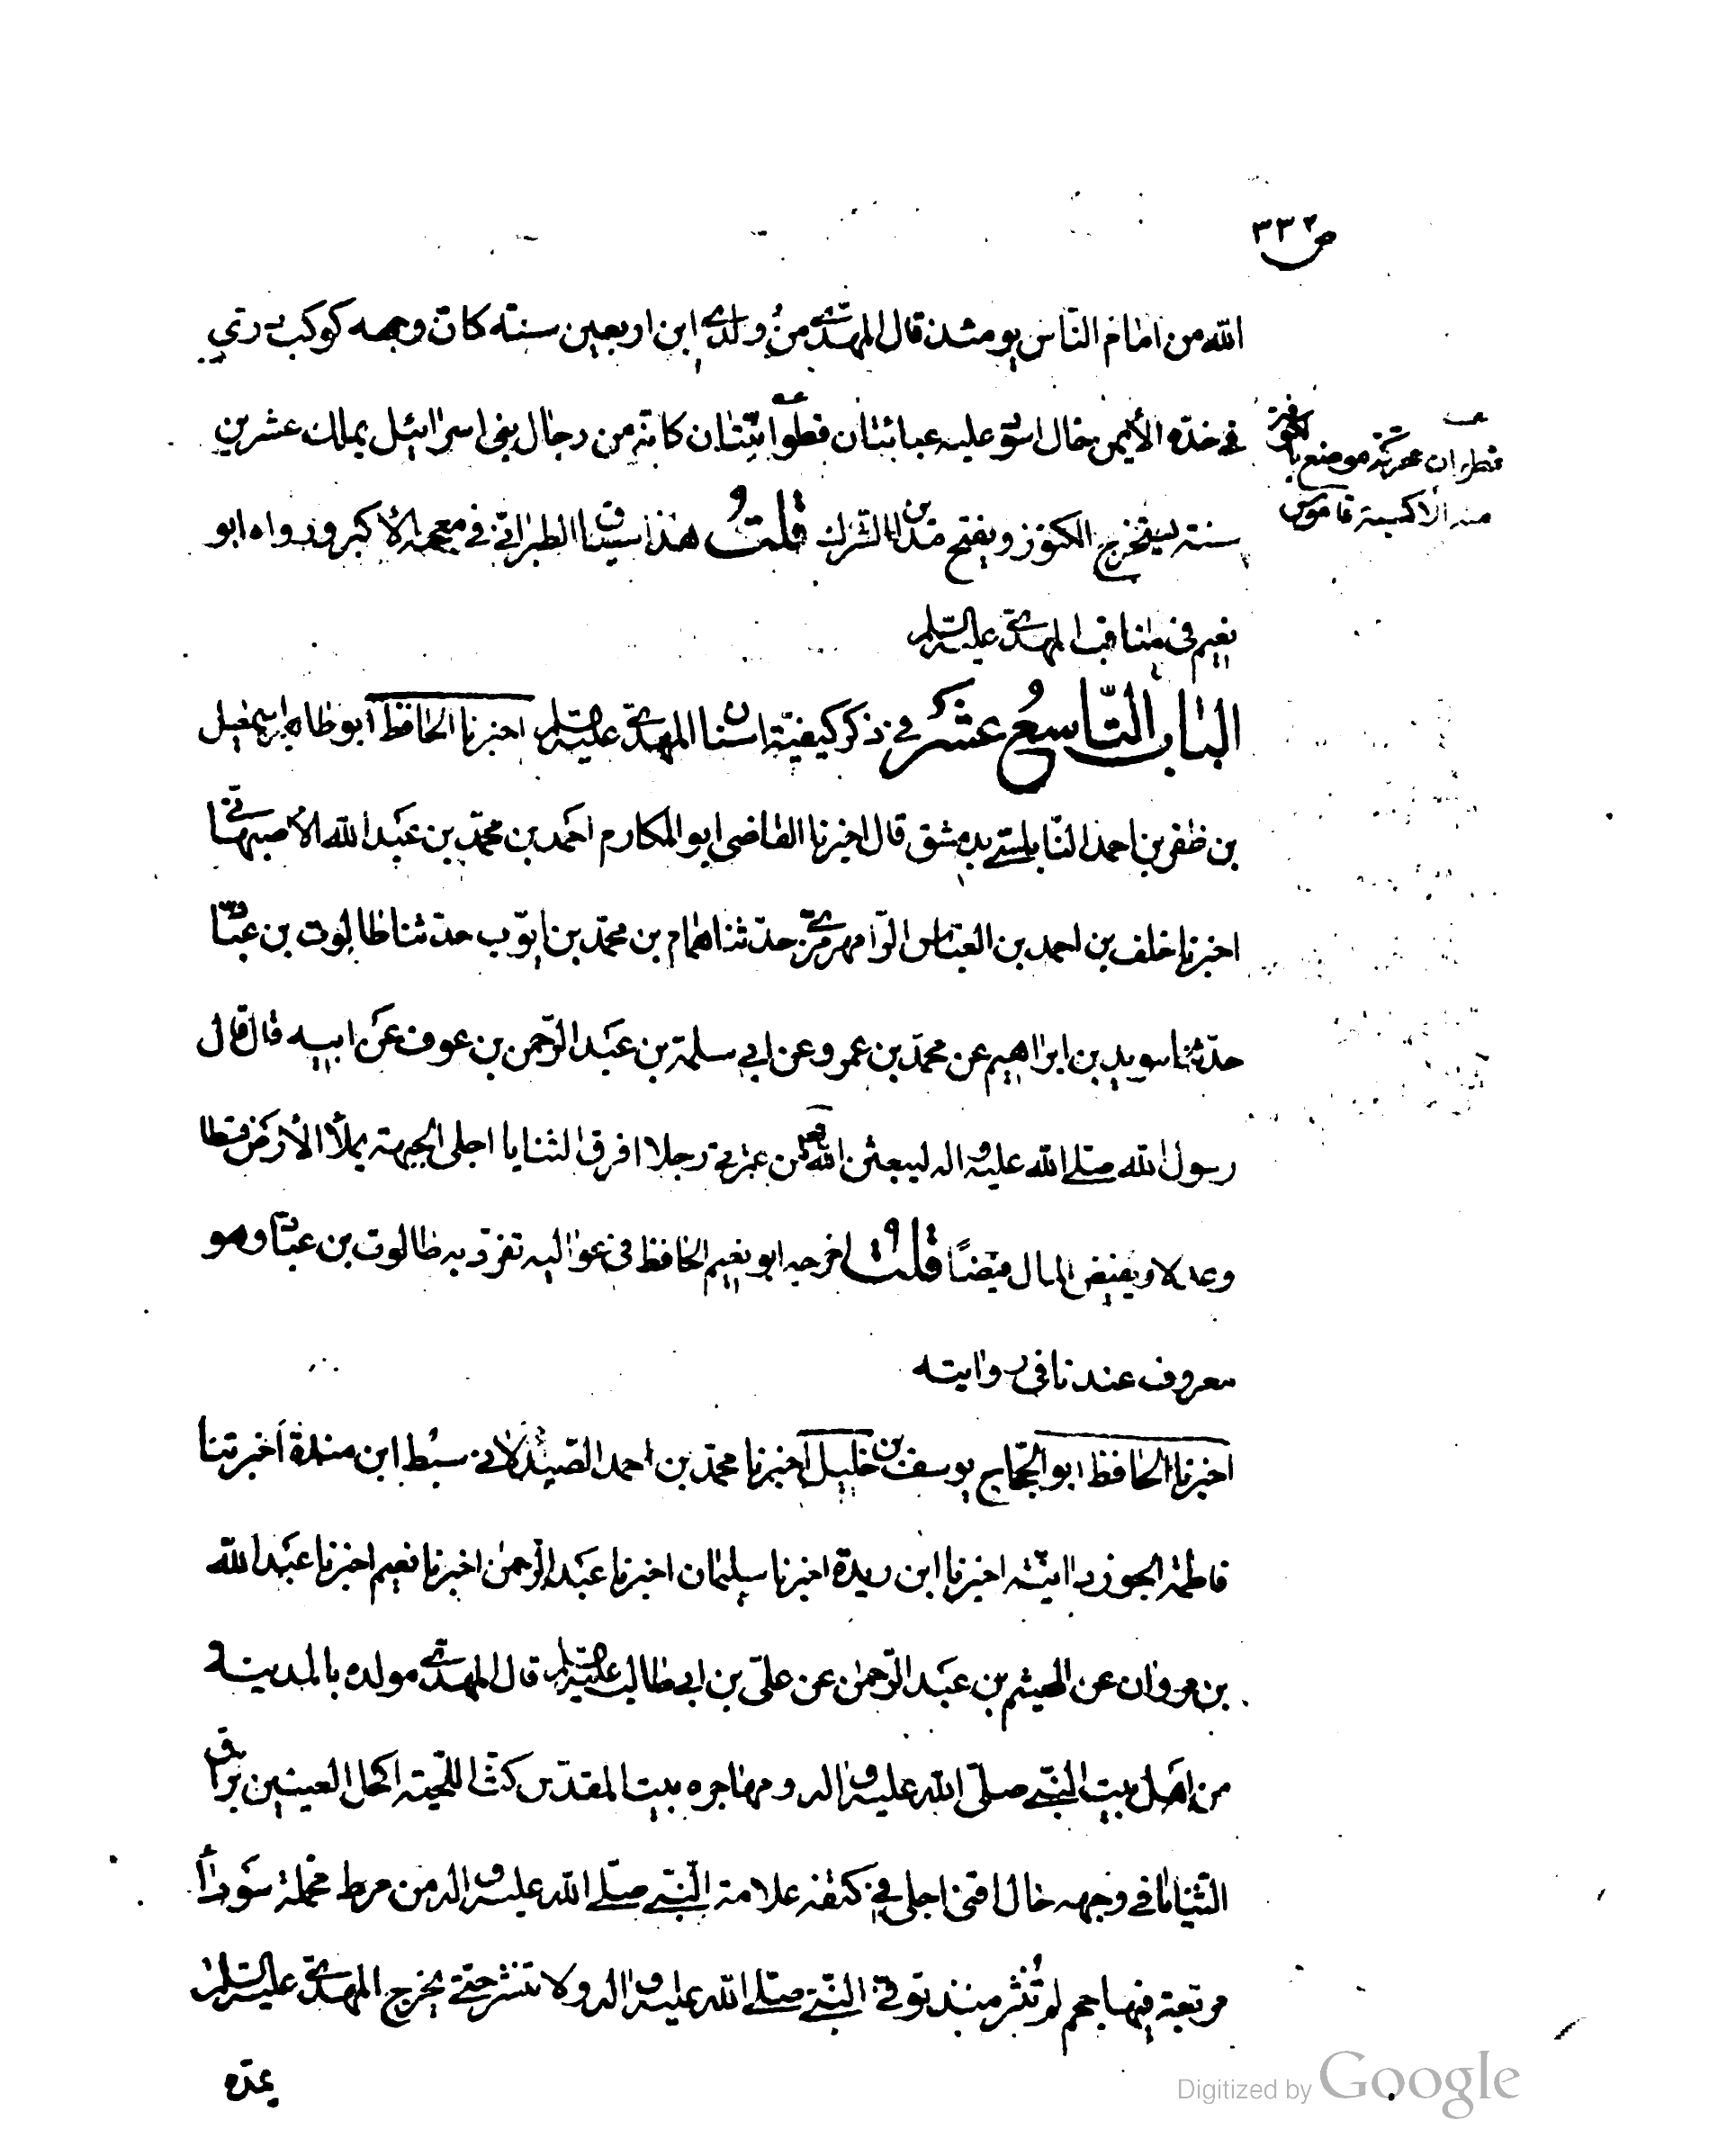 ص ٣٣٢
الله من امام الناس يومئذ قال المهدي من ولدي ابن اربعين سنة كان وجهه كوكب دري
في خده الأيمن خال اسود عليه عبائتان قطوانيتان كانه من رجال بني اسرائيل يملك عشرين
قطوان محركة موضع بالكوفة
منه الاكسية قاموس
سنة يستخرج الكنوز ويفتح مداين الشرك قلت هذا سياق الطبراني في معجمه الأكبر ورواه ابو
نعيم في مناقب المهدي عليه السلم
الباب التاسع عشر في ذكر كيفية اسنان المهدي عليه السلم اخبرنا الحافظ ابو طاهر اسمعيل
بن ظفر بن احمد النابلسي بدمشق قال اخبرنا القاضي ابو المكارم احمد بن محمد بن عبد الله الأصبهاني
اخبرنا خلف بن احمد بن العباس الرامهرمزي حدثنا همام بن محمد بن ايوب حدثنا طالوت بن عباد
حدثنا سويد بن ابراهيم عن محمد بن عمرو عن ابي سلمة بن عبد الرحمن بن عوف عن ابيه قال قال
رسول الله صلى الله عليه واله ليبعثن الله من عترتي رجلا افرق الثنايا اجلى الجبهة يملأ الأرض قسطا
وعدلا ويفيض المال فيضا قلت اخرجه ابو نعيم الحافظ في عواليه تفرد به طالوت بن عباد وهو
معروف عندنا في روايته
اخبرنا الحافظ ابو الحجاج يوسف بن خليل اخبرنا محمد بن احمد الصيدلاني سبط ابن مندة اخبرتنا
فاطمة الجوزدانية اخبرنا ابن ريدة اخبرنا سليمان اخبرنا عبد الرحمن اخبرنا نعيم اخبرنا عبد الله
بن مروان عن الهيثم بن عبد الرحمن عن علي بن ابي طالب عليه السلم قال المهدي مولده بالمدينة
من اهل بيت النبي صلى الله عليه واله ومهاجره بيت المقدس كث اللحية اكحل العينين براق
الثنايا في وجهه خال اقنى اجلى في كتفه علامة النبي صلى الله عليه واله من مرط مخملة سوداء
مربعة فيها حجم لم تنشر منذ توفي النبي صلى الله عليه واله ولا تنشر حتى يخرج المهدي عليه السلم
يمده
Digitized by Google